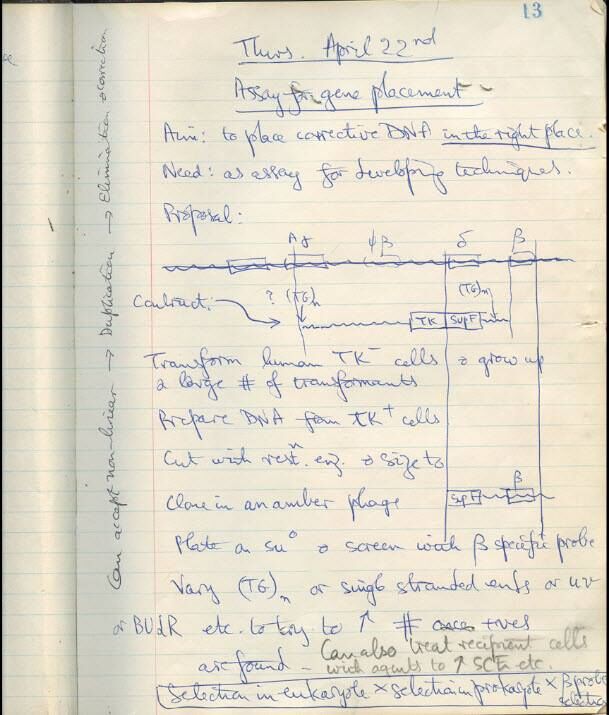 13
Thurs. April 22nd
Assay for gene placement
Aim: to place corrective DNA in the right place.
Need: as assay for developing techniques.
Proposal:
Aγ ψβ δ β
Contract: ? (TG)n (TG)n
TK SupF
Transform human TK- cells & grow up
a large # of transformants
Prepare DNA from TK+ cells
Cut with restn. enz. & size to
β
Clone in an amber phage SupF
Plate on su° & screen with β specific probe
Vary (TG)n or single stranded ends or uv
or BUdR etc. to try to ↑ # +ves
are found - Can also treat recipient cells
with agents to ↑ SCE etc.
Selection in eukaryote × selection in prokaryote × β probe
selection
Can accept non-linear → Duplication → Elimination & correction